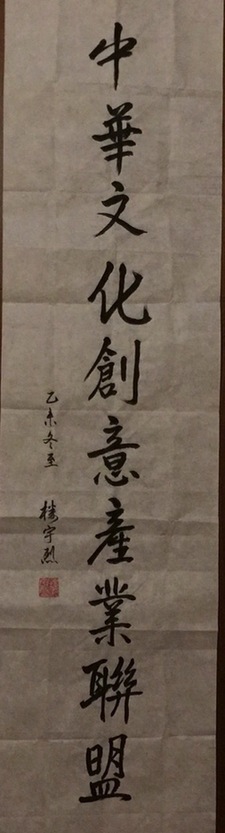 中華文化創意產業聯盟
乙未冬至 樓宇烈